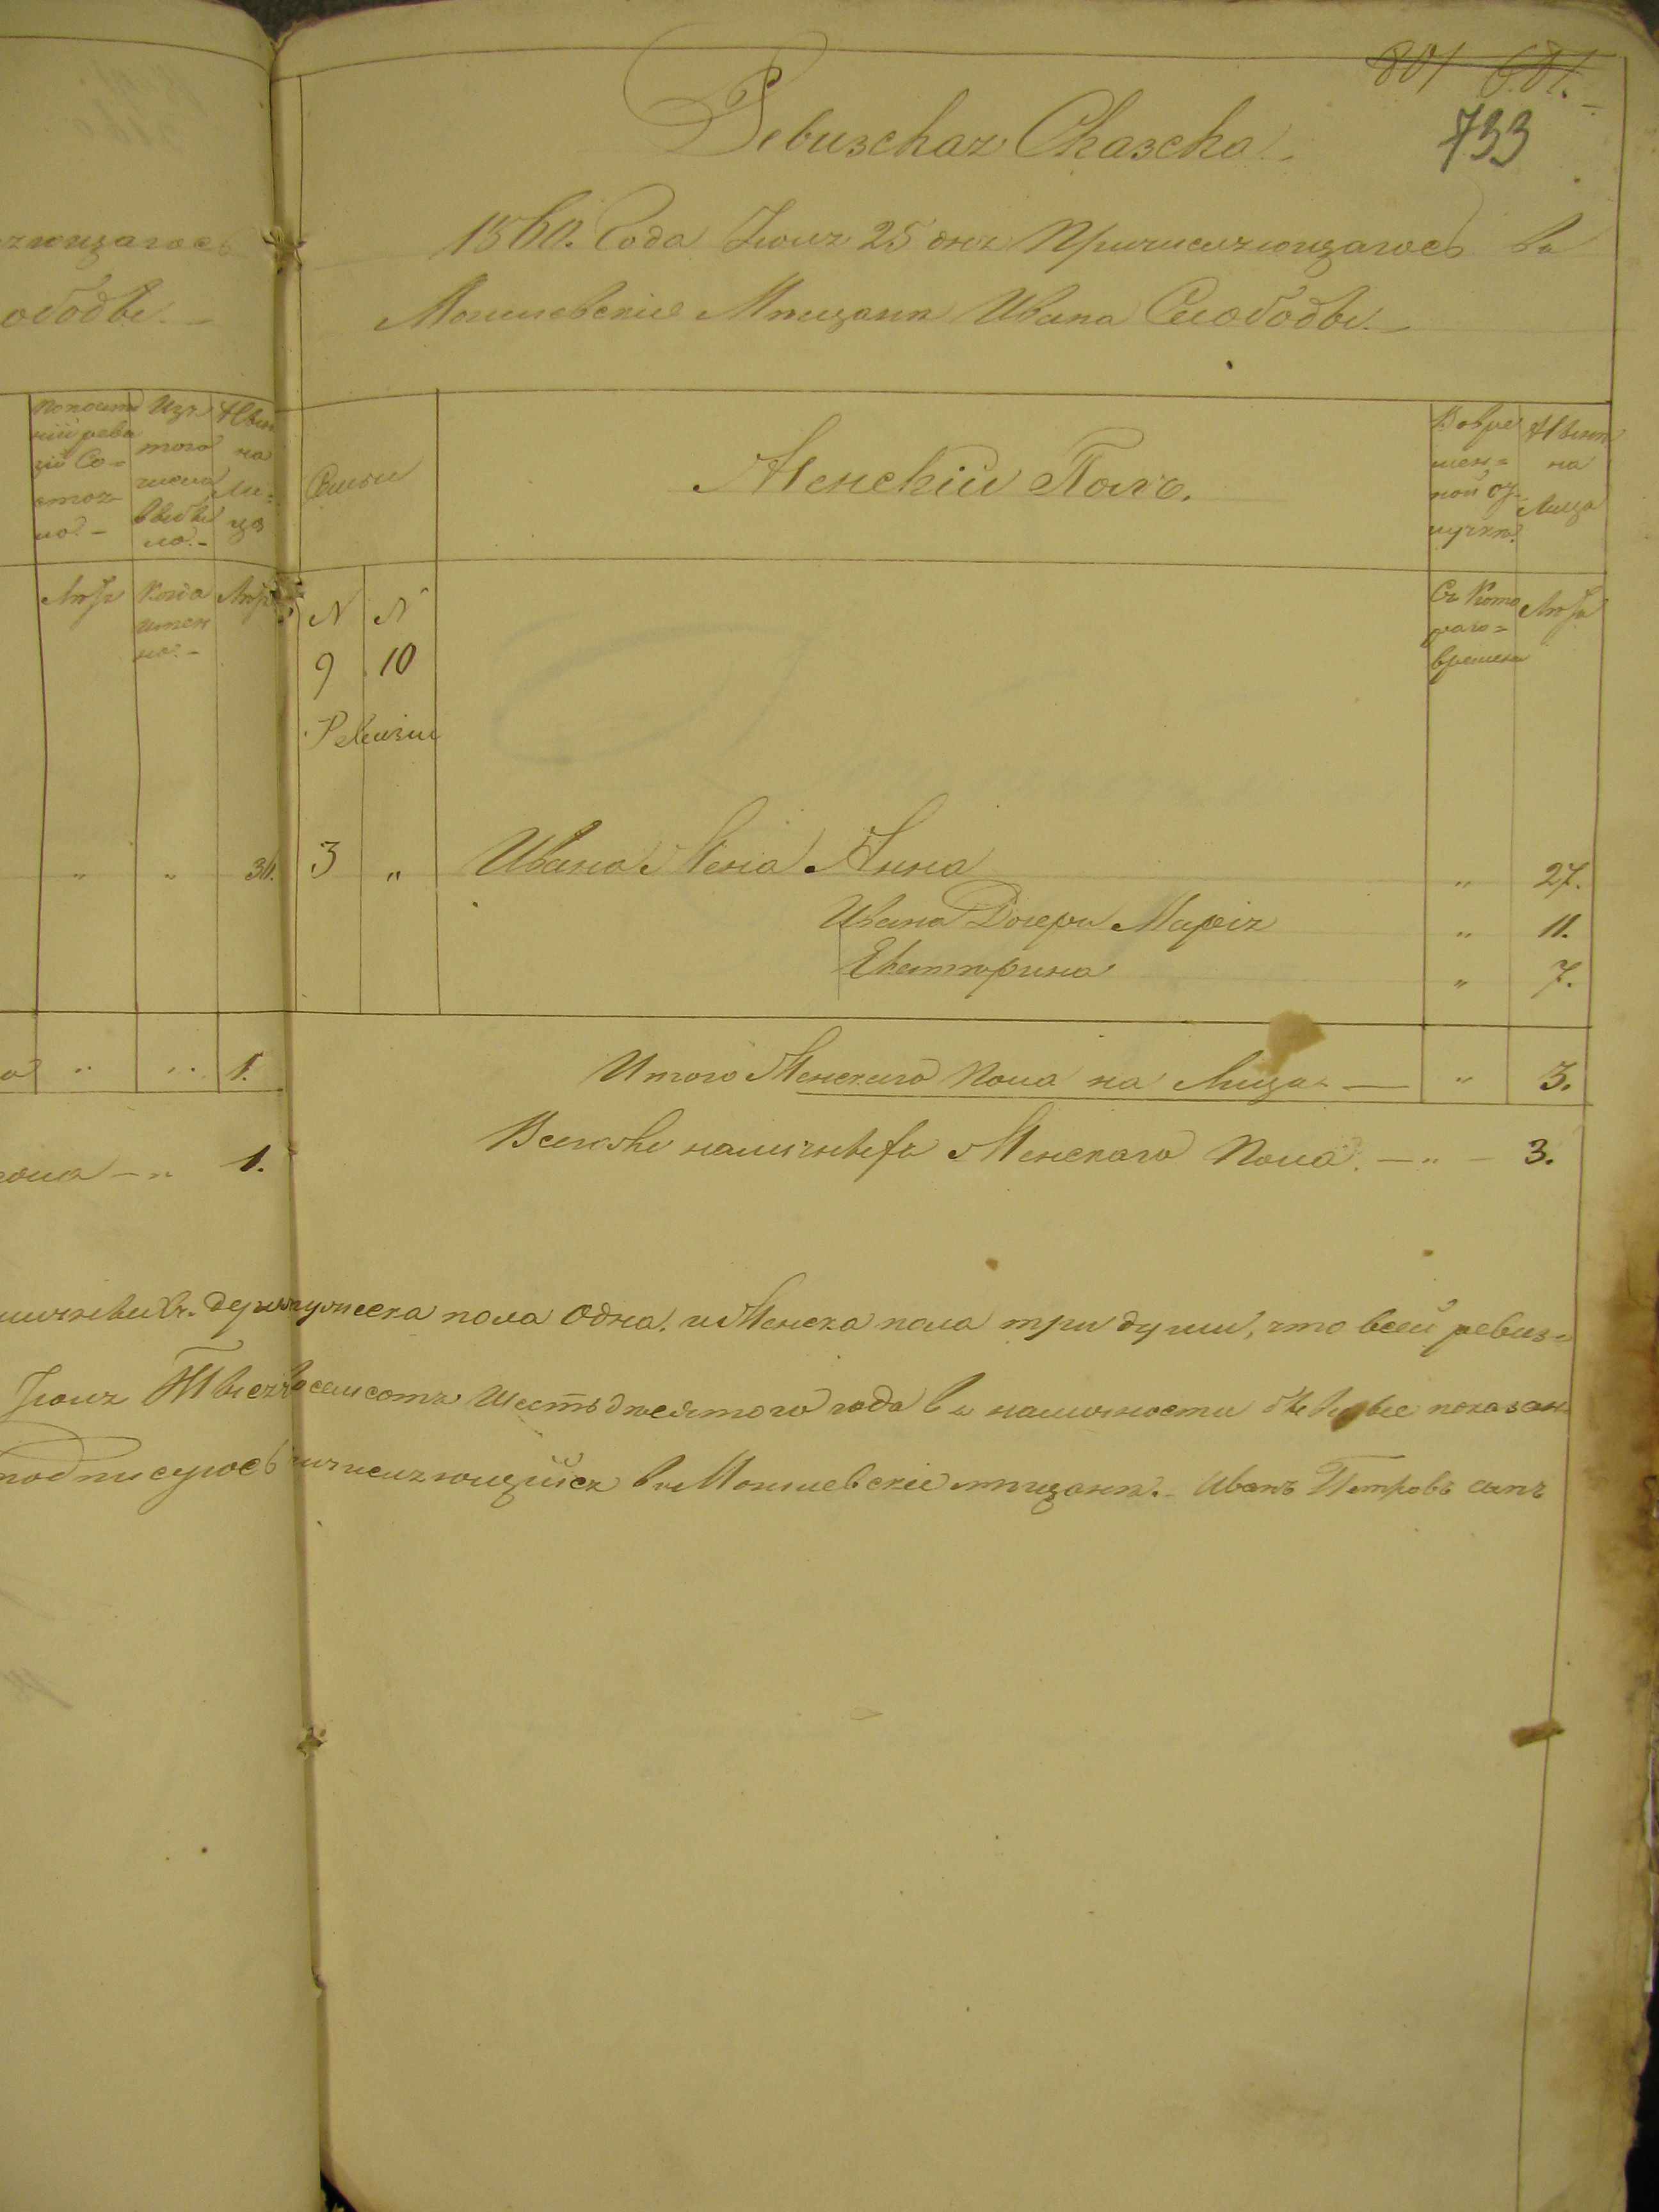 801 601.
733
Ревизская Сказка.
1860. Года Июня 25 дня Причисляющагось въ
Могилевские Мещане Ивана Слободы.
зующагось
ободы.
По последней ревизіи Состояло.
Изъ того числа выбыло.
Нынѣ на Лицо
Семьи
Женскій Полъ.
Во временной отлучкѣ.
Нынѣ на Лицо
Лѣта
Когда именно.
Лѣта
N N
9 10
Ревизіи
Съ Котораго времени
Лѣта
" " 30.
3 " Ивана Жена Анна " 27.
Ивана Дочери Марія " 11.
Екатерина " 7.
" " 1.
Итого Женскаго пола на Лицо — " 3.
пола — " 1.
Всего же наличныхъ Женскаго Пола. — " — 3.
пола Одна, и Женска пола три души, что всей ревиз-
Июня Тысяча восемсотъ Шестьдесятого года въ наличности показан-
подписуюсь въ Могилевские мещане. Иванъ Петровъ сынъ